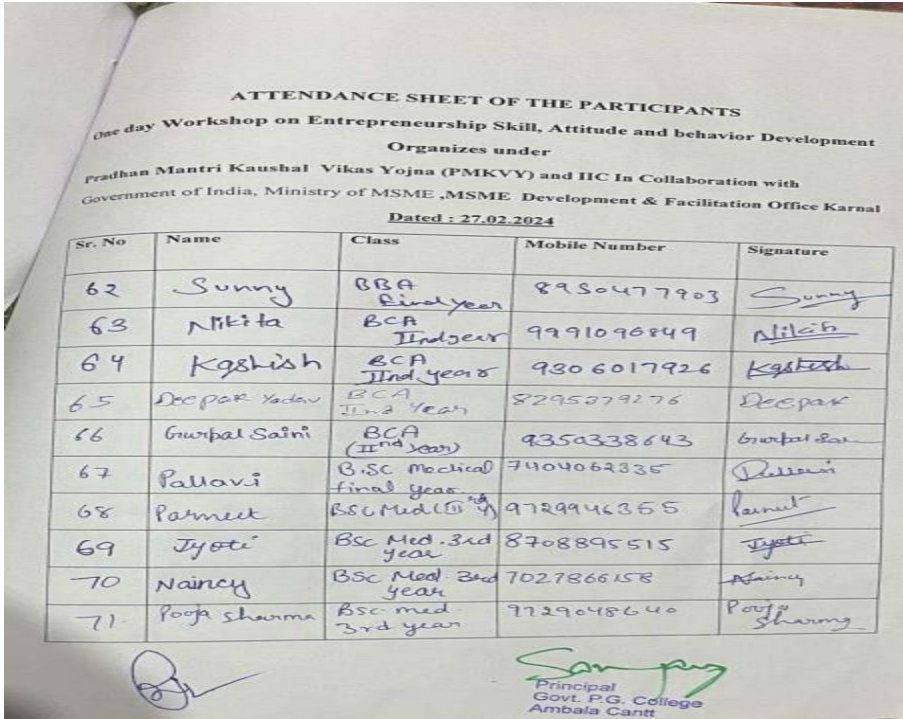 ATTENDANCE SHEET OF THE PARTICIPANTS
One day Workshop on Entrepreneurship Skill, Attitude and behavior Development
Organizes under
Pradhan Mantri Kaushal Vikas Yojna (PMKVY) and IIC In Collaboration with
Government of India, Ministry of MSME ,MSME Development & Facilitation Office Karnal
Dated : 27.02.2024
Sr. No Name Class Mobile Number Signature
62 Sunny BBA 8950477903 Sunny
final year
63 Nikita BCA 9991096849 Nikita
IInd year
64 Kashish BCA 9306017926 Kashish
IInd year
65 Deepak Yadav BCA 8295379276 Deepak
IInd Year
66 Gurpal Saini BCA 9350338643 Gurpal
(IInd year)
67 Pallavi B.SC Medical 7404062335 Pallavi
final year
68 Parneet BSc Med 9729946355 Parneet
69 Jyoti BSc Med. 3rd 8708895515 Jyoti
year
70 Naincy BSC Med. 3rd 7027866158 Naincy
year
71. Pooja sharma Bsc. med. 9729048640 Pooja
3rd year sharma
Principal
Govt. P.G. College
Ambala Cantt